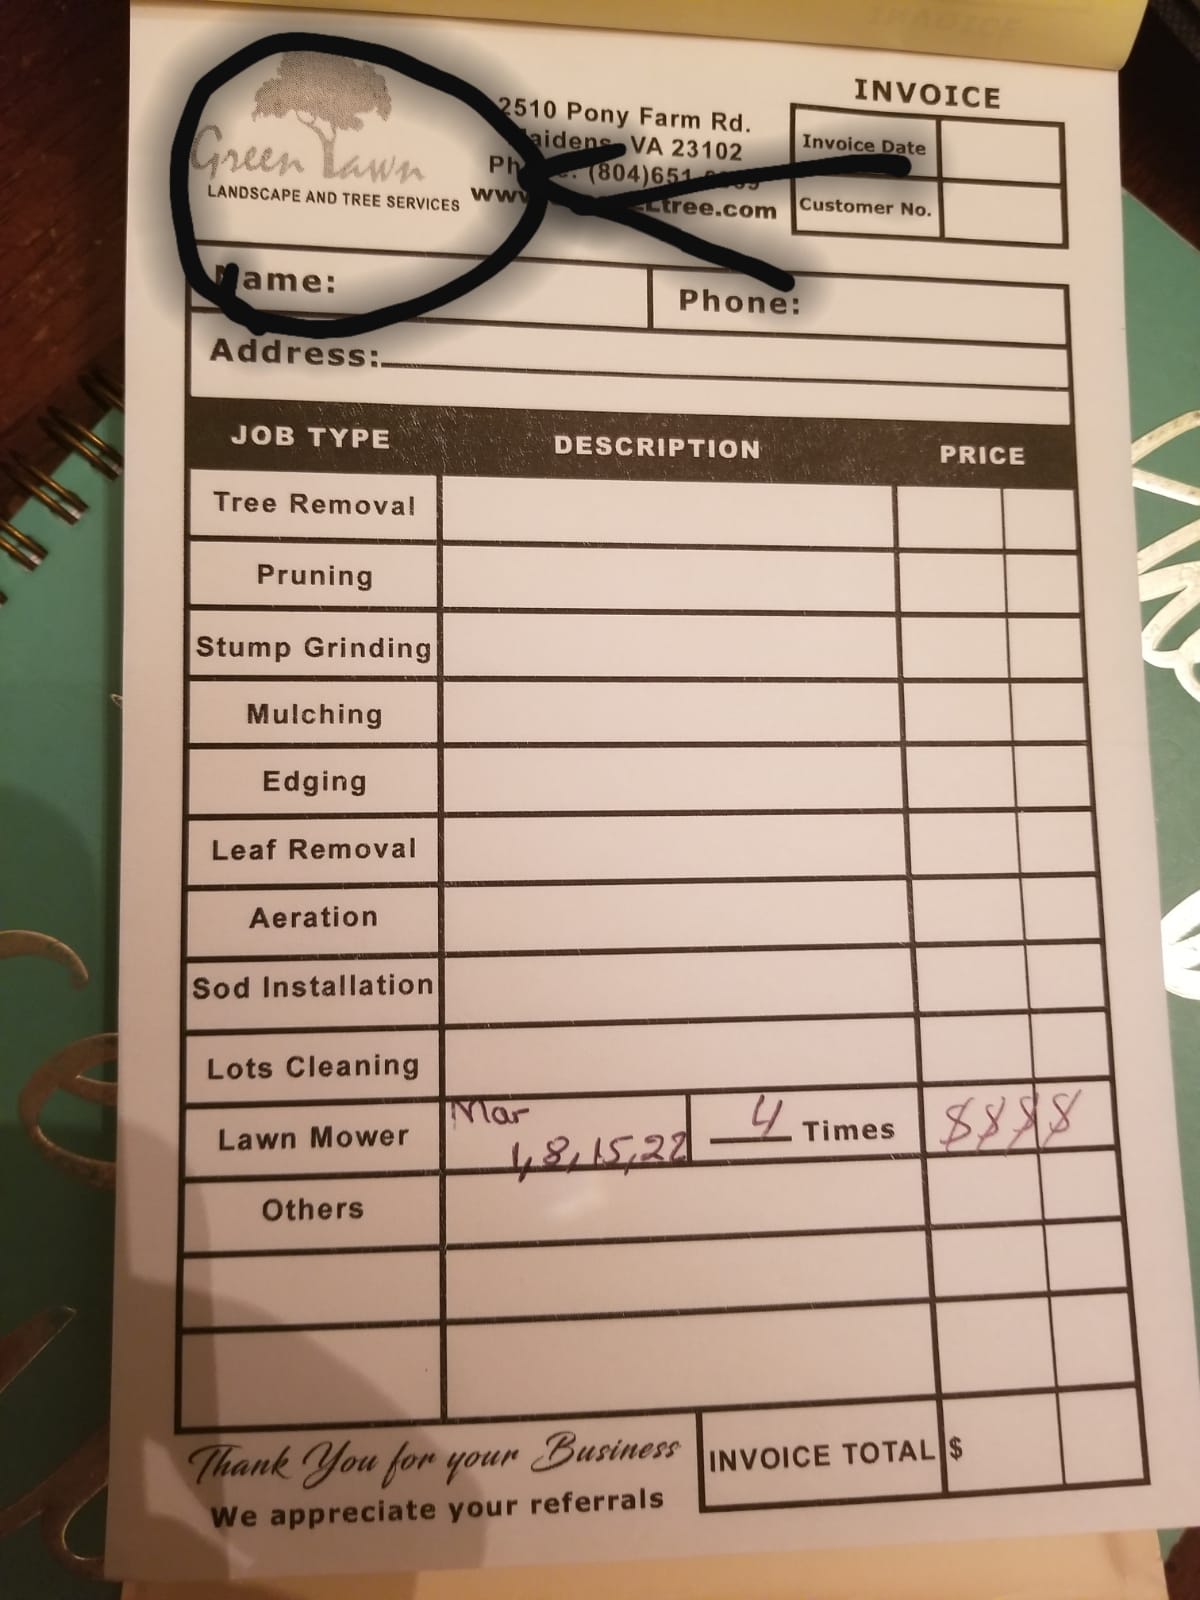 INVOICE
Green Lawn
LANDSCAPE AND TREE SERVICES
2510 Pony Farm Rd.
VA 23102
(804)651
Invoice Date
Customer No.
Name:
Phone:
Address:
JOB TYPE DESCRIPTION PRICE
Tree Removal
Pruning
Stump Grinding
Mulching
Edging
Leaf Removal
Aeration
Sod Installation
Lots Cleaning
Lawn Mower Mar 4 Times $$$$
1,8,15,22
Others
Thank You for your Business
We appreciate your referrals
INVOICE TOTAL $